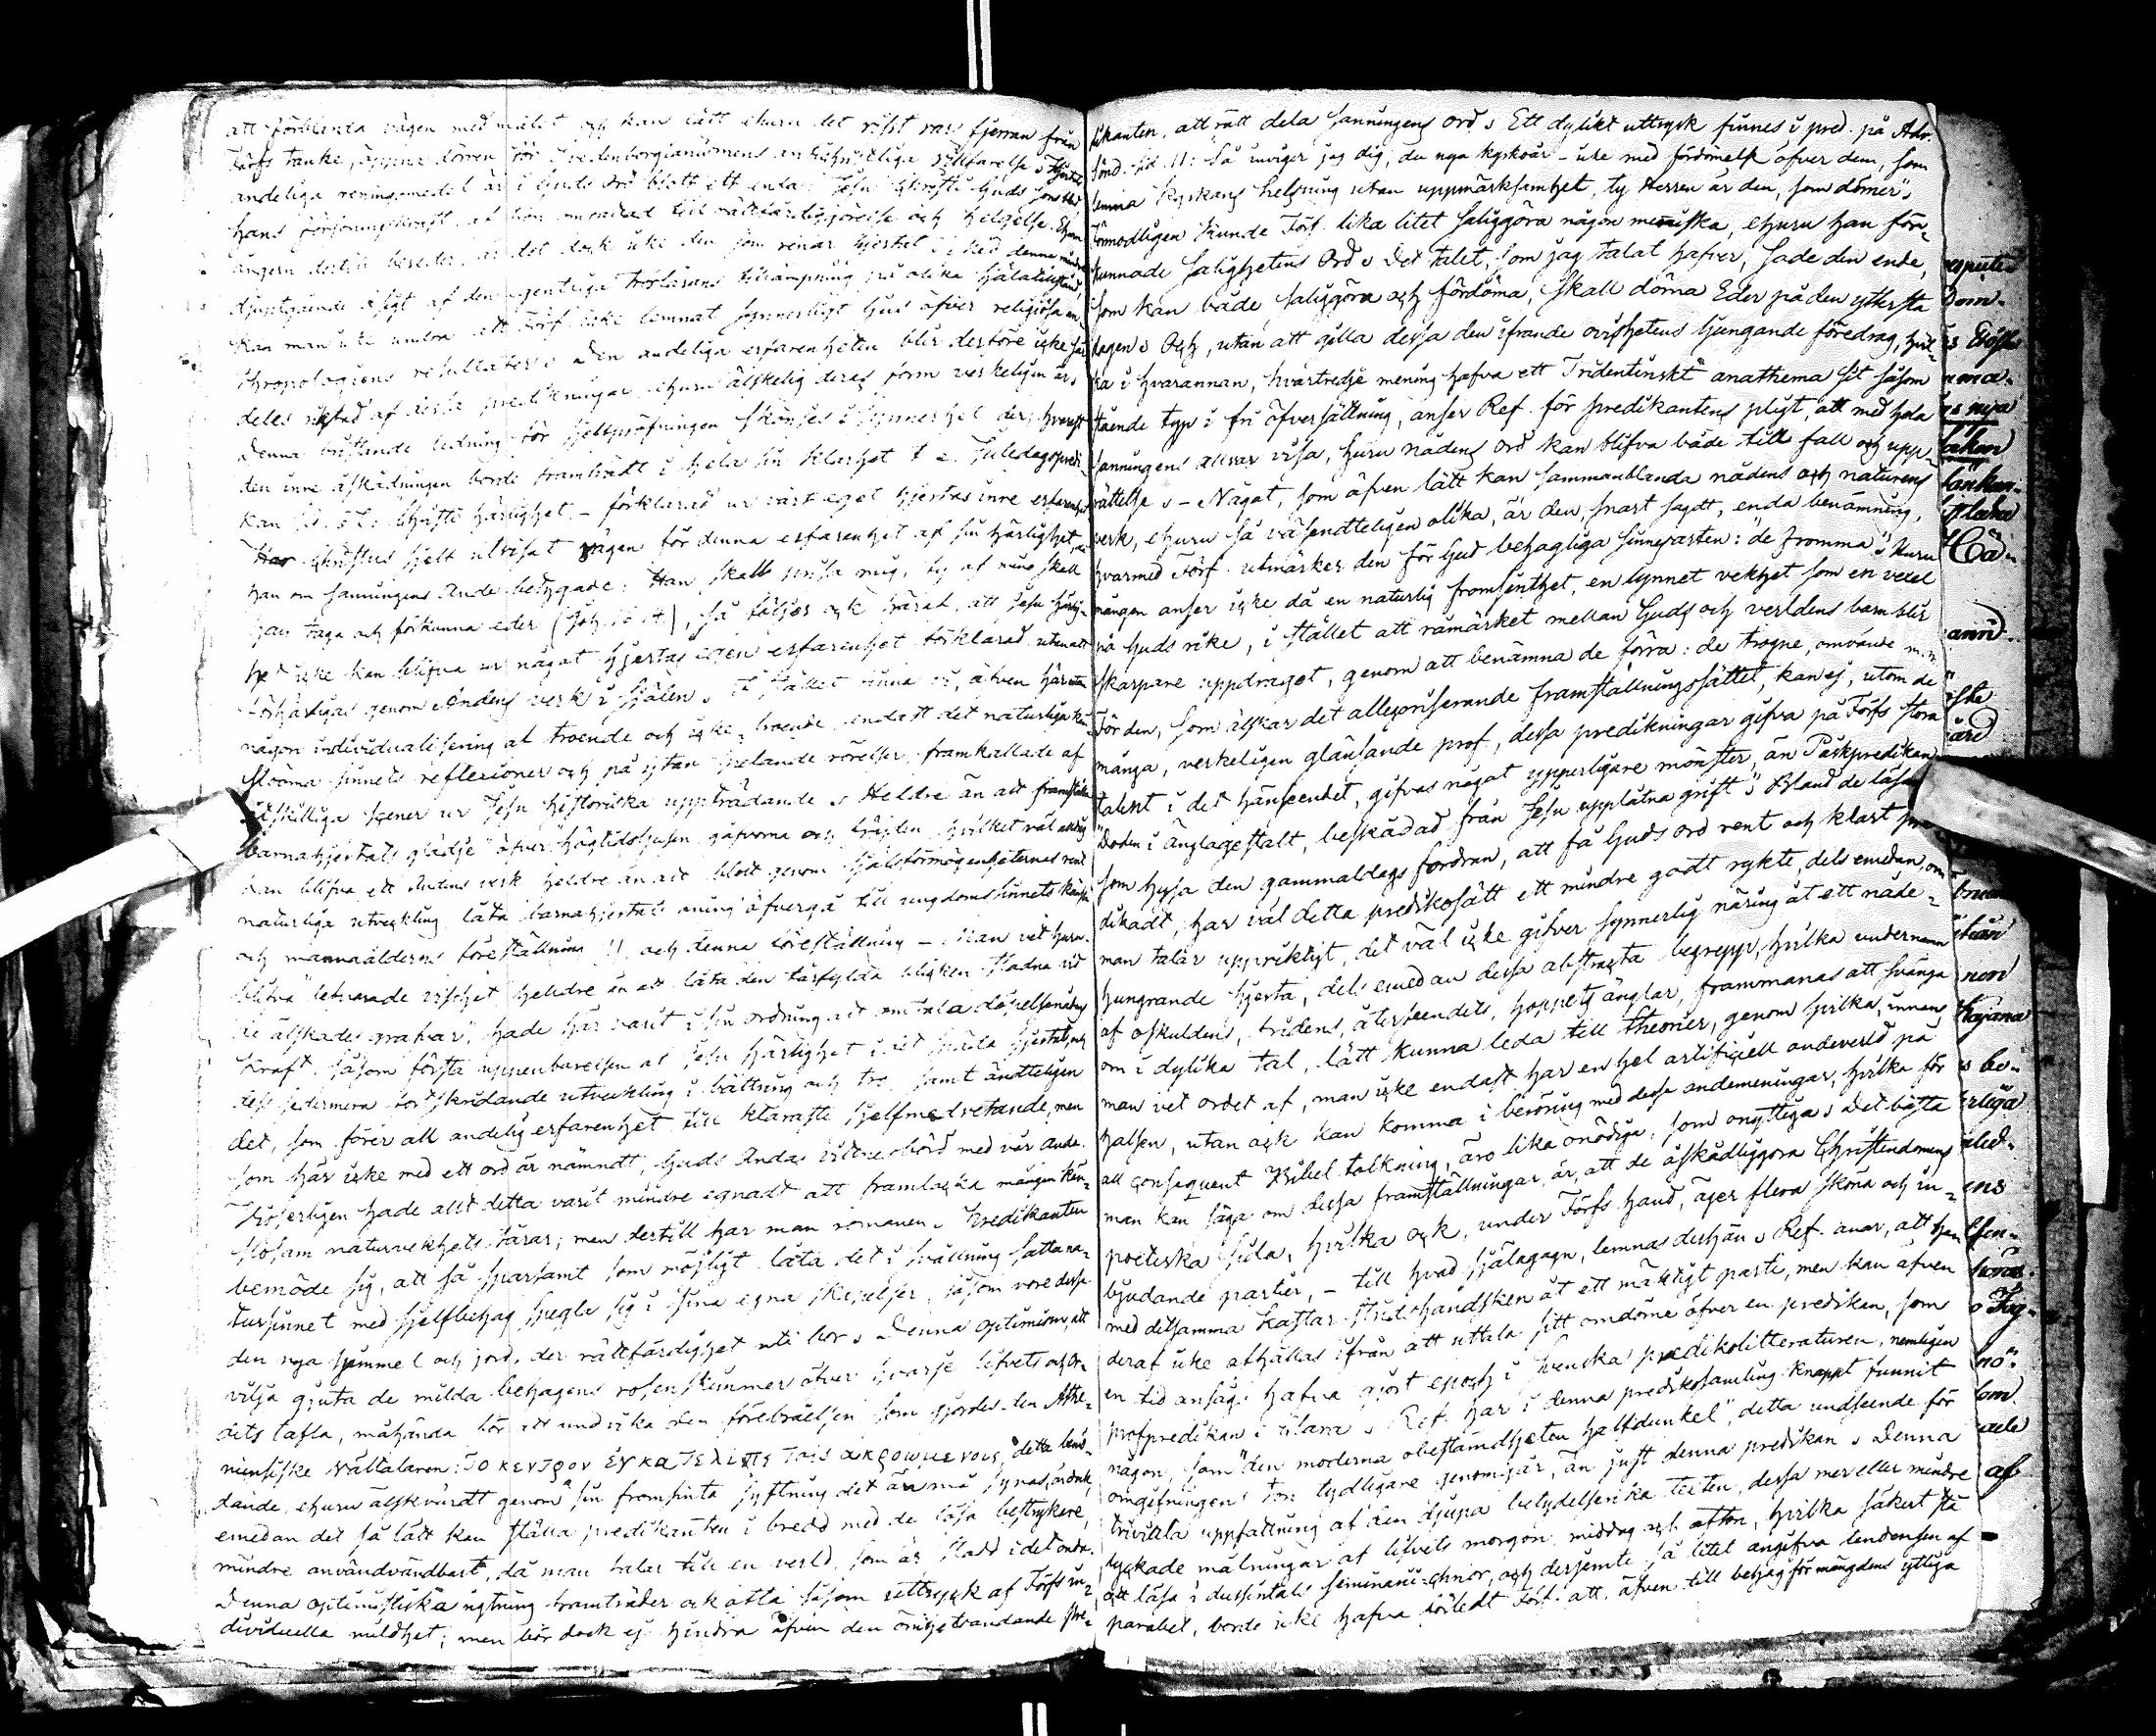 att förblanda vägen med målet och kan lätt ehuru det visst var fjerran från
Förfs tanke, öppna dörren för Svedenborgianismens antichristliga villfarelse. Hjertats
andeliga reningsmedel är i Guds Ord blott ett enda: Jesu Christi Guds Sons blod
hans försoningskraft, af tron omfattad till rättfärdiggörelse och helgelse. Ehuru
ångern dertill bereder, är det dock icke den som renar hjertat. Med denna mindre
djuptgående åsigt af den egentliga troslärans tillämpning på olika själatillstånd,
kan man icke undra att Förf. icke lemnat synnerligt ljus öfver religiösa an-
thropologiens resultater. Den andeliga erfarenheten blir derföre icke sär-
deles riktad af dessa predikningar ehuru älskelig deras form verkeligen är.
Denna bristande ledning för sjelfpröfningen skönjes i synnerhet der, hvarest
den inre åskådningen borde framträdt i hela sin klarhet t. ex. Juledagspredi-
kan Christi härlighet – förklarad ur vårt eget hjertas inre erfarenhet
Har Christus sjelf utvisat vägen för denna erfarenhet af sin härlighet,
han om sanningens Ande betygade: Han skall prisa mig, ty af mino skall
han taga och förkunna eder (Joh. 16. 14), så följer ock häraf, att Jesu härlig-
het icke kan blifva ur något hjertas egen erfarenhet förklarad utan att
förhärligas genom Andens verk i själen. I stället finna vi, äfven här utan
någon individualisering af troende och icke-troende endast det naturliga kän-
slosamma sinnets reflexioner och på ytan spelande rörelser framkallade af
särskilliga scener ur Jesu historiska uppträdande. Heldre än att framställa
barnahjertats glädje öfver högtidsljusen gåfvorna och fröjden, hvilket väl aldrig
kan blifva ett Andens verk heldre än att blott genom själsförmögenheternas rent
naturliga utveckling låta barnahjertats aning öfvergå till ungdomssinnets känsla
och mannaålderns föreställning !! och denna föreställning – Man vet huru
blifva beknarade vishet heldre än att låta den tårfyllda blicken stadna vid
de älskades grafvar, hade här varit i sin ordning att omtala döpelsenådens
kraft, såsom första uppenbarelsen af Jesu härlighet i det späda hjertat, och
dess sedermera fortskridande utveckling i bättring och tro, samt ändteligen
det, som förer all andelig erfarenhet till klaraste sjelfmedvetande, men
som här icke med ett ord är nämndt, Guds Andas vittnesbörd med vår ande.
Troligen hade allt detta varit mindre egnadt att framlocka mången kän-
slosam naturvekhets tårar; men dertill har man romanen. Predikanten
bemöde sig, att så sparsamt som möjligt låta det i svallning satta na-
tursinnet med sjelfbehag spegla sig i sina egna skapelser, såsom vore desse
den nya himmel och jord, der rättfärdighet uti bor. Denna optimism, att
vilja gjuta de milda behagens rosenskimmer öfver hvarje lifvets och Or-
dets tafla, måhända för att undvika den förebråelsen som gjordes den Athe-
niensiske vältalaren: Το κεντρον ἐγκατελιπε τοις ακροωμενοις, detta bemö-
dande, ehuru älskvärdt genom sin fromsinta syftning det än må synas, är dock,
emedan det så lätt kan ställa predikanten i bredd med de lösa bestrykare,
mindre användvändbart, då man talar till en verld, som är stadd i det onda.
Denna optimistiska rigtning framträder ock ofta såsom uttryck af Förfs in-
dividuella mildhet; men bör dock ej hindra äfven den ömhjertandande pre-
dikanten, att rätt dela sanningens ord. Ett dylikt uttryck finnes i pred. på Adv.
sönd. sid. 11: Så inviger jag dig, du nya kyrkoår – icke med fördömelse öfver dem, som
lemna kyrkans helsning utan uppmärksamhet, ty Herren är den, som dömer".
Förmodligen kunde Förf. lika litet saliggöra någon meniska, ehuru han för-
kunnade salighetens Ord. Det talet, som jag talat hafver, sade den ende,
som kan både saliggöra och fördöma, skall döma Eder på den yttersta
dagen. Och, utan att gilla dessa den ifrande ovishetens ljungande föredrag, hvil-
ka i hvarannan, hvartredje mening hafva ett Tridentinskt anathema sit såsom
stående typ i fri öfversättning, anser Ref. för predikantens pligt, att med hela
sanningens allvar visa, huru nådens ord kan blifva både till fall och upp-
rättelse. – Något, som äfven lätt kan sammanblanda nådens och naturens
verk, ehuru så väsendteligen olika, är den, snart sagdt, enda benämning,
hvarmed Förf. utmärker den för Gud behagliga sinnesarten: "de fromma". Huru
mången anser icke då en naturlig fromsinthet, en lynnet vekhet som en vexel
på Guds rike, i stället att råmärket mellan Guds och verldens barn blir
skarpare uppdraget, genom att benämna de förra: de trogne, omvände m.m.
För den, som älskar det allegoriserande framställningssättet, kan ej, utom de
många, verkeligen glänsande prof, dessa predikningar gifva på Förfs stora
talent i det hänseendet, gifvas något ypperligare mönster, än Påskpredikan
"Döden i änglagestalt, beskådad från Jesu upplåtna grift". Bland de läsare
som hysa den gammaldags fordran, att få Guds ord rent och klart pre-
dikadt, har väl detta predikosätt ett mindre godt rykte, dels emedan, om
man talar uppriktigt, det väl icke gifver synnerlig näring åt ett nåde-
hungrande hjerta, dels emedan dessa abstracta begrepp, hvilka undernamn
af oskuldens, fridens, återseendets, hoppets änglar, frammanas att svänga
om i dylika tal, lätt kunna leda till theorier, genom hvilka, innan
man vet ordet af, man icke endast har en hel artificiell andeverld på
halsen, utan ock kan komma i beröring med desse andemeningar, hvilka för
all consequent Bibeltolkning, äro lika onödiga, som onyttiga. Det bästa
man kan säga om dessa framställningar, är, att de åskådliggöra Christendomens
poetiska sida, hvilka ock, under Förfs hand, äger flera sköna och in-
bjudande partier, – till hvad själagagn, lemnas derhän. Ref. anar, att han
med detsamma kastar stridshandsken åt ett mäktigt parti, men kan äfven
deraf icke afhållas ifrån att uttala sitt omdöme öfver en predikan, som
en tid ansågs hafva gjort epoch i Svenska predikolitteraturen, nemligen
profpredikan i Clara. Ref. har i denna predikosamling knappt funnit
någon, som "den moderna obestämdheten halfdunkel", detta undseende för
omgifningens ton tydligare genomgår, än just denna predikan. Denna
triviala uppfattning af den djupa betydelserika texten, dessa mer eller mindre
lyckade målningar af lifvets morgon, middag och afton, hvilka säkert stå
att läsa i dussintals seminarii-chrior, och dessemte så litet angifva tendensen af
parabel, borde icke hafva förledt Förf. att, äfven till behag för mängdens ytliga